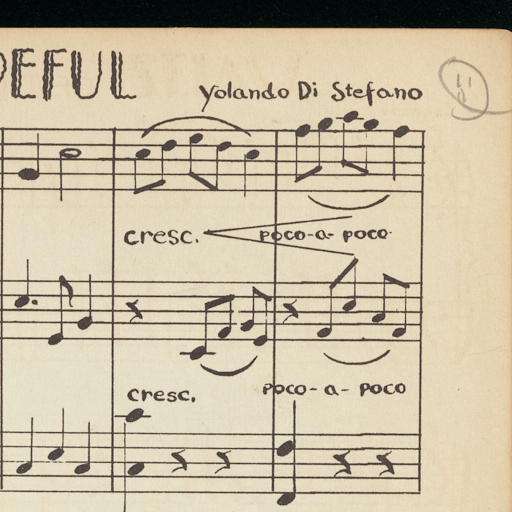 DEFUL
Yolando Di Stefano
cresc. poco-a-poco
cresc. poco-a-poco